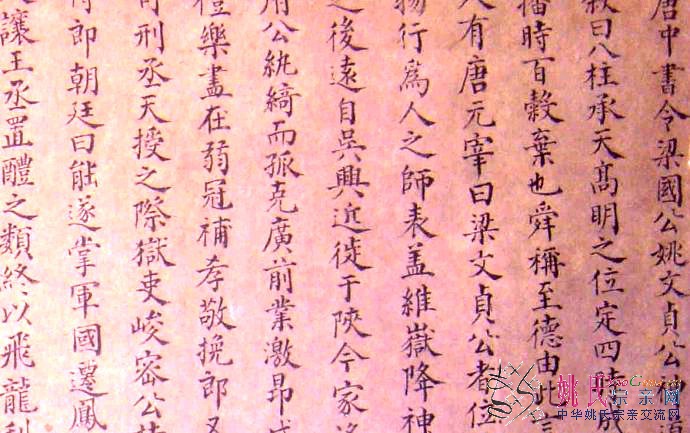 唐中書令梁國公姚文貞公神道
敘曰八柱承天高明之位定四時成
播時百穀棄也舜稱至德由此言
人有唐元宰曰梁文貞公者位
物行爲人之師表盖維嶽降神
之後遠自吳興近徙于陜今家
用公紈綺而孤克廣前業激昂成
禮樂盡在弱冠補孝敬挽郎又
司刑丞天授之際獄吏峻密公持
即朝廷曰能遂掌軍國遷鳳
讓王丞置醴之類終以飛龍利
姚氏宗亲网
中华姚氏宗亲交流网